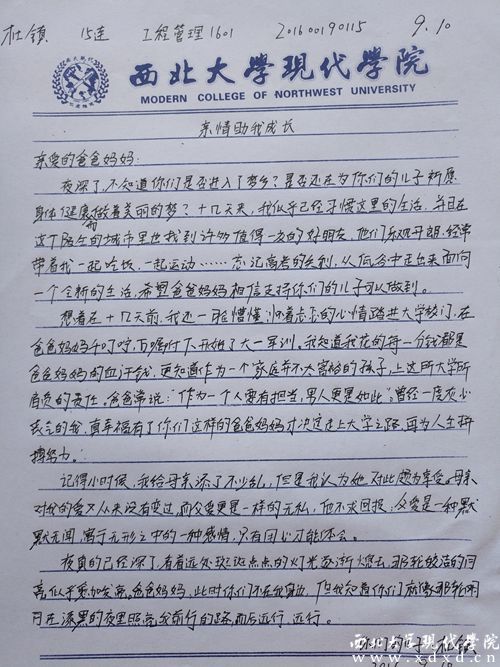 杜镇 15连 工程管理1601 201600190115 9.10
西北大學現代學院
MODERN COLLEGE OF NORTHWEST UNIVERSITY
亲情助我成长
亲爱的爸爸妈妈:
夜深了,不知道你们是否进入了梦乡?是否还在为你们的儿子祈愿
身体健康,做着美丽的梦?十几天来,我似乎已经习惯这里的生活,并且在
这个陌生的城市里也找到许多值得一交的好朋友,他们乐观开朗,经常
带着我一起吃饭,一起运动……忘记高考的失利,从低谷中走出来面向
一个全新的生活,希望爸爸妈妈相信支持你们的儿子可以做到。
想着在十几天前,我还一脸懵懂,怀着忐忑的心情踏进大学校门,在
爸爸妈妈千叮咛,万嘱咐下开始了大一军训。我知道我花的每一分钱都是
爸爸妈妈的血汗钱,更知道作为一个家庭并不太富裕的孩子,上这所大学所
肩负的责任。爸爸常说:“作为一个人要有担当,男人更是如此”,曾经一度灰心
丧气的我,真幸福有了你们这样的爸爸妈妈才决定走上大学之路,再为人生拼
搏努力。
记得小时候,我给母亲添了不少乱,但是我认为她对此颇为享受。母亲
对我的爱从来没有变过,而父爱更是一样的无私,他不求回报,父爱是一种默
默无闻,寓于无形之中的一种感情,只有用心才能体会。
夜真的已经深了,看着远处斑斑点点的灯光逐渐熄去,那轮皎洁的月
亮似乎更加发亮,爸爸妈妈,此时你们不在我身边,但我知道你们就像那轮明
月在漆黑的夜里照亮我前行的路,而后远行,远行。
你们的儿子:杜镇
西北大学现代学院
www.xdxd.cn